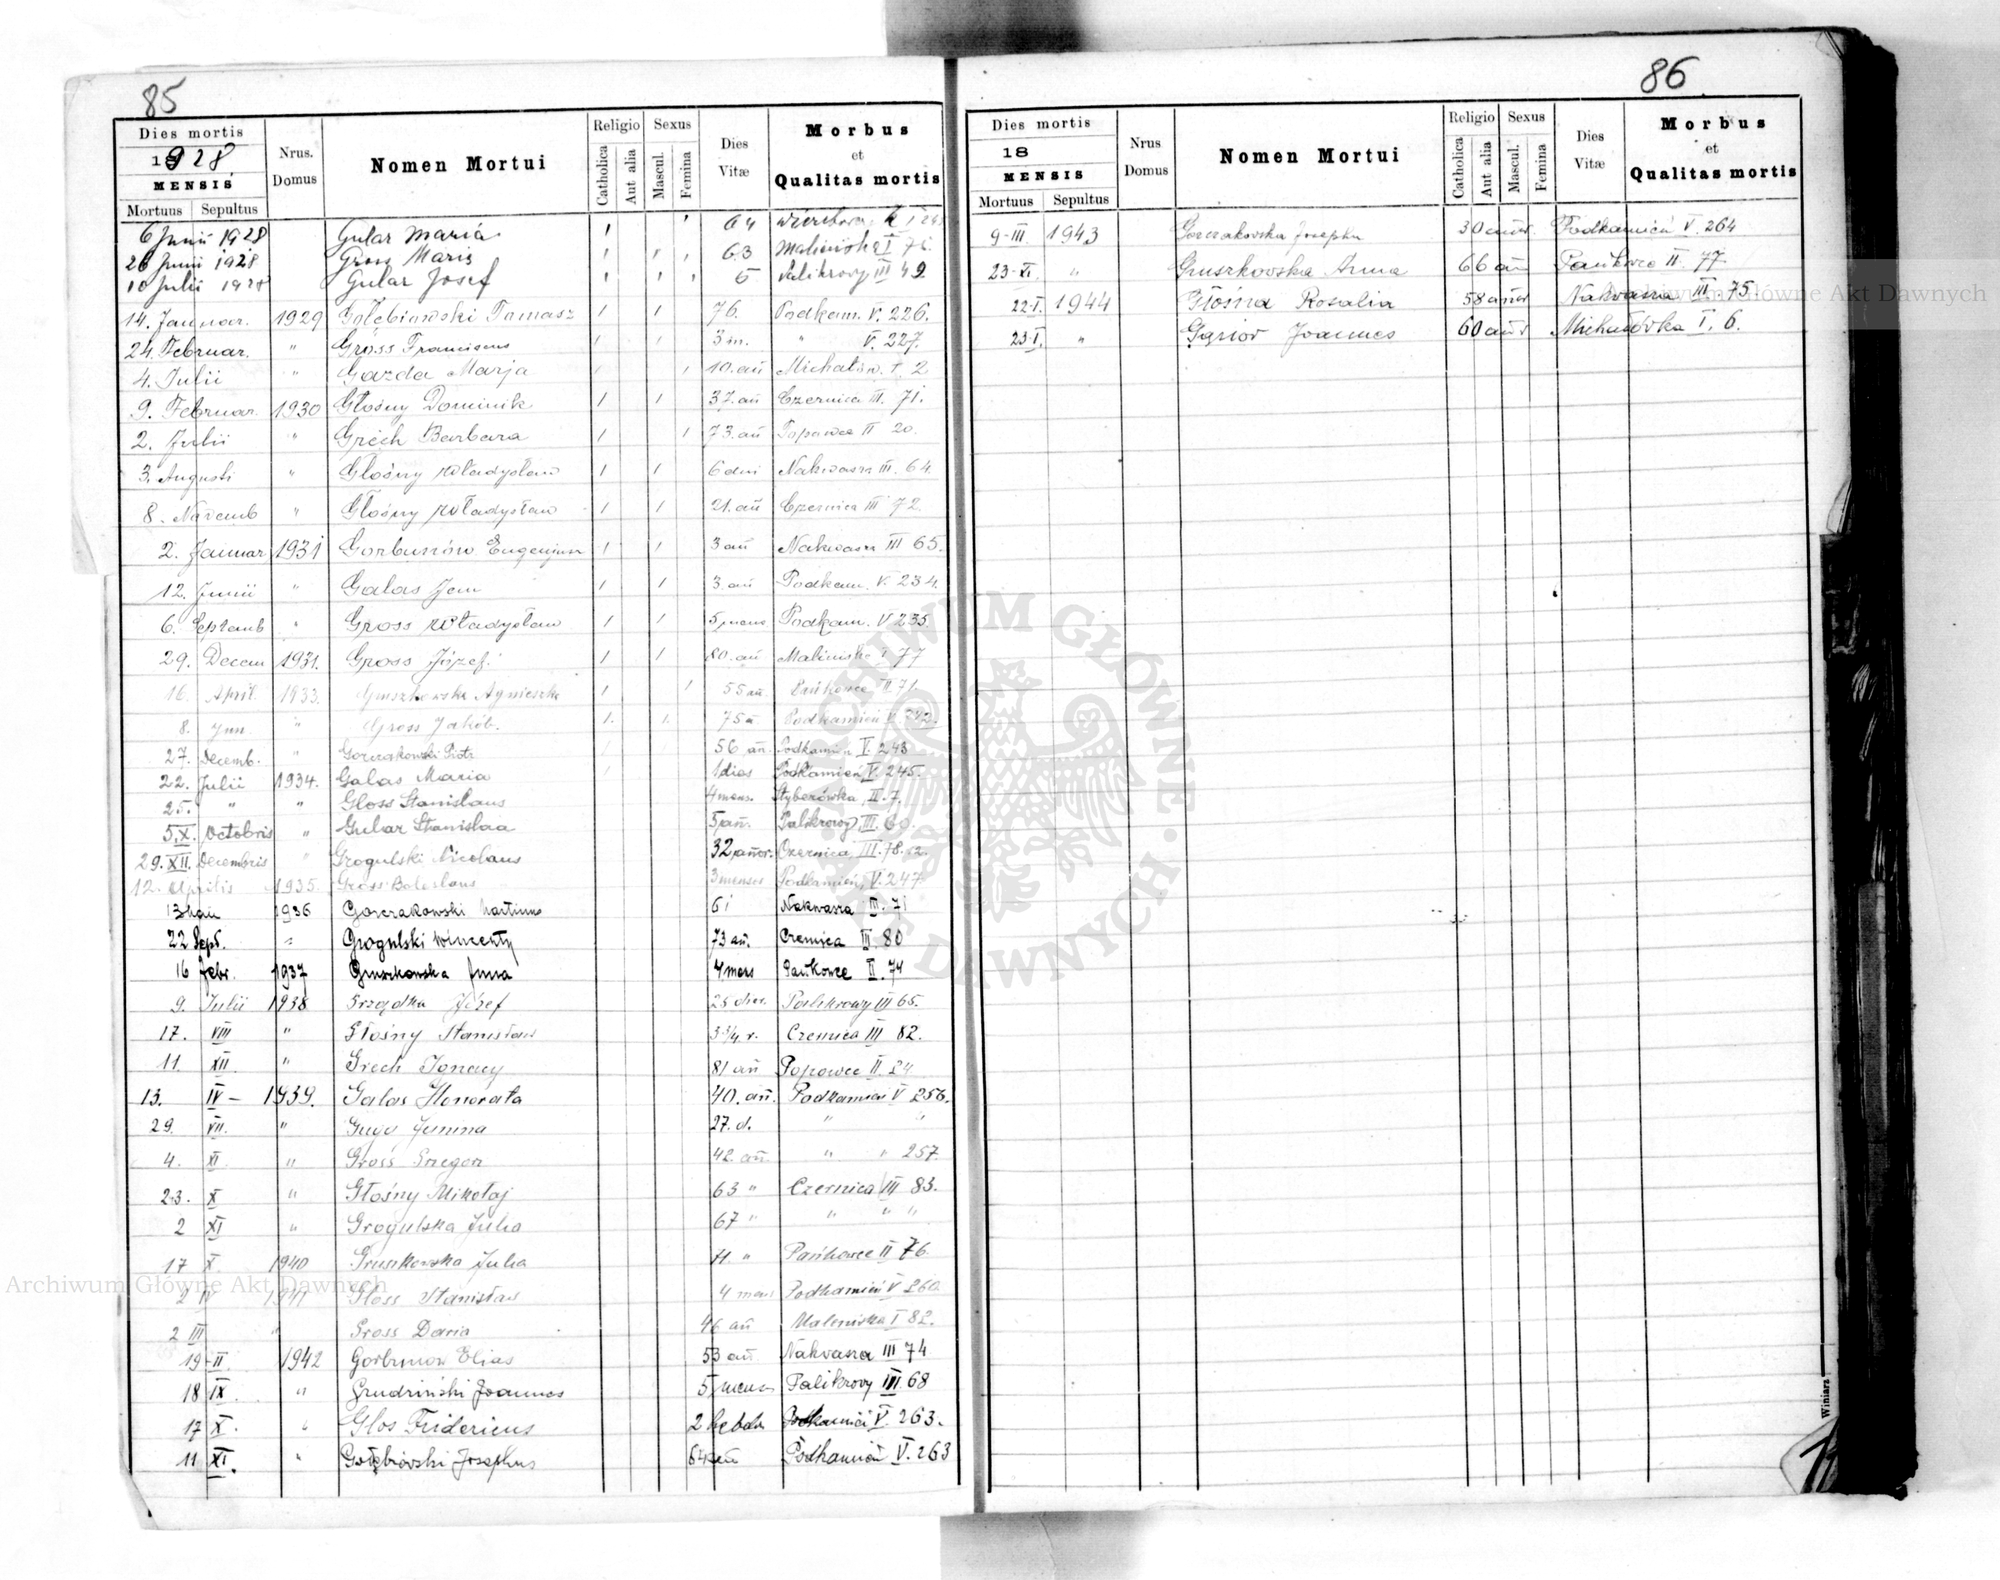 85
Dies mortis
1928
MENSIS
Mortuus Sepultus
Nrus. Domus
Nomen Mortui
Religio
Catholica
Aut alia
Sexus
Mascul.
Femina
Dies Vitæ
Morbus
et
Qualitas mortis
6 Junii 1928 Gular Maria 64
26 Junii 1928 Gross Maria 63 Maleniska I 76
10 Julii 1928 Gular Josef 5 Palikrovy III 49
14. Januar. 1929 Gołebiowski Tomasz 76. Podkam. V. 226.
24. Februar. " Gross Franciscus 3 m. " V. 227.
4. Julii " Gazda Marja 10. añ Michałów. I. 2
9. Februar. 1930 Głośny Dominik 37. añ Czernica III. 71.
2. Julii " Grech Barbara 73. añ Popowce II 20.
3. Augusti " Głośny Władysław 6 dni Nakwasza III. 64.
8. Novemb " Głośny Władysław 21. añ Czernica III 72.
2. Januar 1931 Gorbunów Eugenjusz 3 añ Nakwasza III 65.
12. Junii " Galas Jan 3. añ Podkam. V. 234.
6. Septemb " Gross Władysław 5 mens Podkam. V 235.
29. Decem 1931. Gross Józef 80. añ Maliniska I 77
16. April. 1933. Gruszkowska Agnieszka 55 añ. Pańkowce II 71.
8. Jun. " Gross Jakób. 75 a. Podkamień V.
27. Decemb. " Gorczakowski Piotr 56 añ. Podkamień V. 243
22. Julii 1934. Galas Maria 1 dies Podkamień V. 245.
25. " " Gloss Stanislaus 4 mens. Styberówka, II. 7.
5.X. Octobris " Gular Stanislaa 5 añ. Palikrovy III. 60.
29. XII. Decembris " Grogulski Nicolaus 32 añor. Czernica, III. 78.
12. Aprilis 1935. Gross Boleslaus 3 menses Podkamień, V. 247.
13 Maii 1936 Gorczakowski Martinus 61 Nakwasza III. 71
22 Sept. " Grogulski Wincenty 73 añ. Czernica III. 80
16 Febr. 1937 Gruszkowska Anna 4 mens Pańkowce II. 74
9. Julii 1938 Grzędka Józef 25 dier. Palikrowy III 65.
17. VIII " Głośny Stanisław 3 3/4 r. Czernica III 82.
11. XII. " Grech Ignacy 81 añ Popowce II. 24.
13. IV – 1939. Galas Honorata 40. añ. Podkamień V 256.
29. VII. " Janina 27. d. " "
4. XI " Gross Grzegorz 42. añ. " " 257.
23. X " Głośny Mikołaj 63 " Czernica III 83.
2 XI " Grogulska Julia 67 " " " "
17 X. 1940 Gruszkowska Julia 71. " Pańkowce II 76.
2 IV 1941 Gloss Stanisław 4 mens Podkamień V 260
2 III " Gross Daria 46 añ Maleniska I 82.
19-II. 1942 Gorbunow Elias 53 añ. Nakvasza III 74
18 IX. " Grudziński Joannes 5 mens Palikrovy III. 68
17 X. " Glos Fridericus 2 hebdo Podkamień V. 263.
11 XI. " Gołębiovski Josephus 64 añ Podkamień V. 263
86
Dies mortis
18
MENSIS
Mortuus Sepultus
Nrus Domus
Nomen Mortui
Religio
Catholica
Aut alia
Sexus
Mascul.
Femina
Dies Vitæ
Morbus
et
Qualitas mortis
9-III. 1943 Gorczakovska Josepha 30 añor Podkamień V. 264
23-XI. " Gruszkovska Anna 66 añ Pańkovce II. 77.
22-I. 1944 Głośna Rosalia 58 añor Nakvasza III. 75.
23-I. " Gąsior Joannes 60 añor Michałóvka I. 6.
Winiarz
Archiwum Główne Akt Dawnych
Archiwum Główne Akt Dawnych
ARCHIWUM GŁÓWNE AKT DAWNYCH